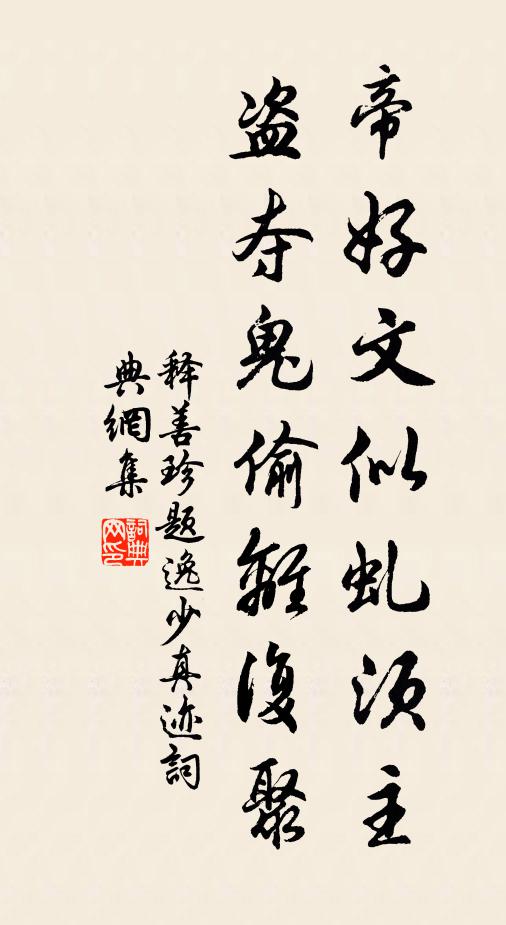 帝好文似虬须主
盗夺鬼偷離復聚
释善珍题逸少真迹詞
典網集
詞典
网印